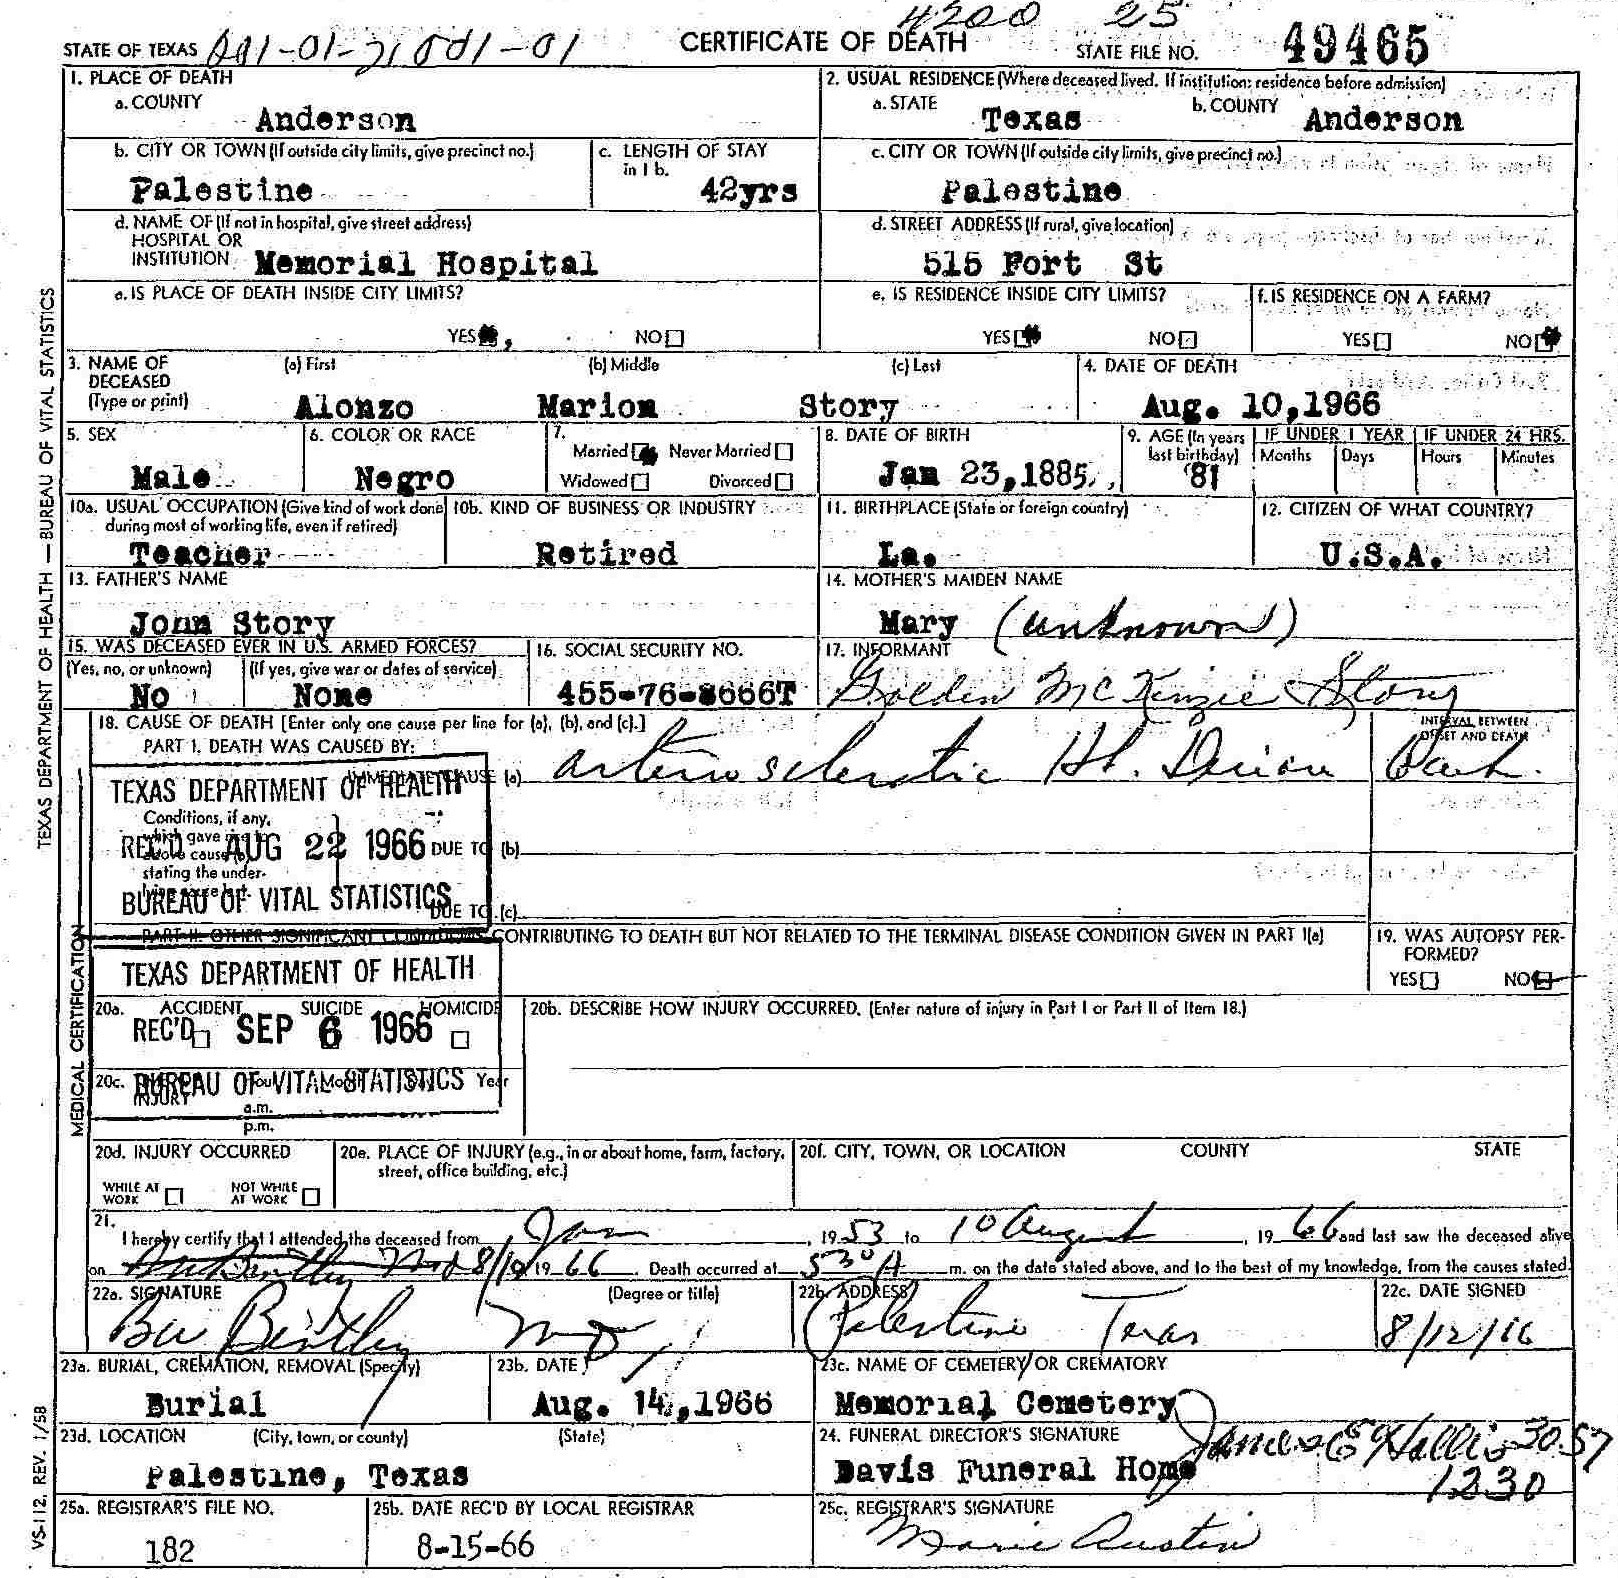 4200 25
STATE OF TEXAS CERTIFICATE OF DEATH STATE FILE NO. 49465
1. PLACE OF DEATH
a. COUNTY
Anderson
2. USUAL RESIDENCE (Where deceased lived. If institution: residence before admission)
a. STATE b. COUNTY
Texas Anderson
b. CITY OR TOWN (If outside city limits, give precinct no.)
Palestine
c. LENGTH OF STAY
in 1 b.
42yrs
c. CITY OR TOWN (If outside city limits, give precinct no.)
Palestine
d. NAME OF (If not in hospital, give street address)
HOSPITAL OR
INSTITUTION Memorial Hospital
d. STREET ADDRESS (If rural, give location)
515 Fort St
e. IS PLACE OF DEATH INSIDE CITY LIMITS?
YES NO
e. IS RESIDENCE INSIDE CITY LIMITS?
YES NO
f. IS RESIDENCE ON A FARM?
YES NO
3. NAME OF DECEASED (Type or print)
(a) First (b) Middle (c) Last
Alonzo Marion Story
4. DATE OF DEATH
Aug. 10,1966
5. SEX
Male
6. COLOR OR RACE
Negro
7.
Married Never Married
Widowed Divorced
8. DATE OF BIRTH
Jan 23,1885
9. AGE (In years
last birthday)
81
IF UNDER 1 YEAR IF UNDER 24 HRS.
Months Days Hours Minutes
10a. USUAL OCCUPATION (Give kind of work done
during most of working life, even if retired)
Teacher
10b. KIND OF BUSINESS OR INDUSTRY
Retired
11. BIRTHPLACE (State or foreign country)
La.
12. CITIZEN OF WHAT COUNTRY?
U.S.A.
13. FATHER'S NAME
John Story
14. MOTHER'S MAIDEN NAME
Mary (unknown)
15. WAS DECEASED EVER IN U.S. ARMED FORCES?
(Yes, no, or unknown) (If yes, give war or dates of service)
No None
16. SOCIAL SECURITY NO.
455-76-8666T
17. INFORMANT
Golden McKinzie Story
18. CAUSE OF DEATH [Enter only one cause per line for (a), (b), and (c).]
PART I. DEATH WAS CAUSED BY:
IMMEDIATE CAUSE (a) arteriosclerotic Ht.
INTERVAL BETWEEN
ONSET AND DEATH
TEXAS DEPARTMENT OF HEALTH
REC'D AUG 22 1966
BUREAU OF VITAL STATISTICS
Conditions, if any,
which gave rise to
above cause (a),
stating the under-
lying cause last.
DUE TO (b)
DUE TO (c)
PART II. OTHER SIGNIFICANT CONDITIONS CONTRIBUTING TO DEATH BUT NOT RELATED TO THE TERMINAL DISEASE CONDITION GIVEN IN PART I(a)
19. WAS AUTOPSY PER-
FORMED?
YES NO
TEXAS DEPARTMENT OF HEALTH
REC'D SEP 6 1966
BUREAU OF VITAL STATISTICS
20a. ACCIDENT SUICIDE HOMICIDE
20b. DESCRIBE HOW INJURY OCCURRED. (Enter nature of injury in Part I or Part II of Item 18.)
20c.
INJURY
Year
a.m.
p.m.
20d. INJURY OCCURRED
WHILE AT
WORK
NOT WHILE
AT WORK
20e. PLACE OF INJURY (e.g., in or about home, farm, factory,
street, office building, etc.)
20f. CITY, TOWN, OR LOCATION COUNTY STATE
21.
I hereby certify that I attended the deceased from Jan, 1953 to 10 August, 1966 and last saw the deceased alive
on 8/10 1966. Death occurred at 530 A m. on the date stated above, and to the best of my knowledge, from the causes stated.
22a. SIGNATURE (Degree or title)
Bentley MD
22b. ADDRESS
Palestine Texas
22c. DATE SIGNED
8/12/66
23a. BURIAL, CREMATION, REMOVAL (Specify)
Burial
23b. DATE
Aug. 14,1966
23c. NAME OF CEMETERY OR CREMATORY
Memorial Cemetery
23d. LOCATION (City, town, or county) (State)
Palestine, Texas
24. FUNERAL DIRECTOR'S SIGNATURE
Davis Funeral Home
James E Hollis 3057
1230
25a. REGISTRAR'S FILE NO.
182
25b. DATE REC'D BY LOCAL REGISTRAR
8-15-66
25c. REGISTRAR'S SIGNATURE
Marie Austin
TEXAS DEPARTMENT OF HEALTH — BUREAU OF VITAL STATISTICS
MEDICAL CERTIFICATION
VS-112, REV. 1/58